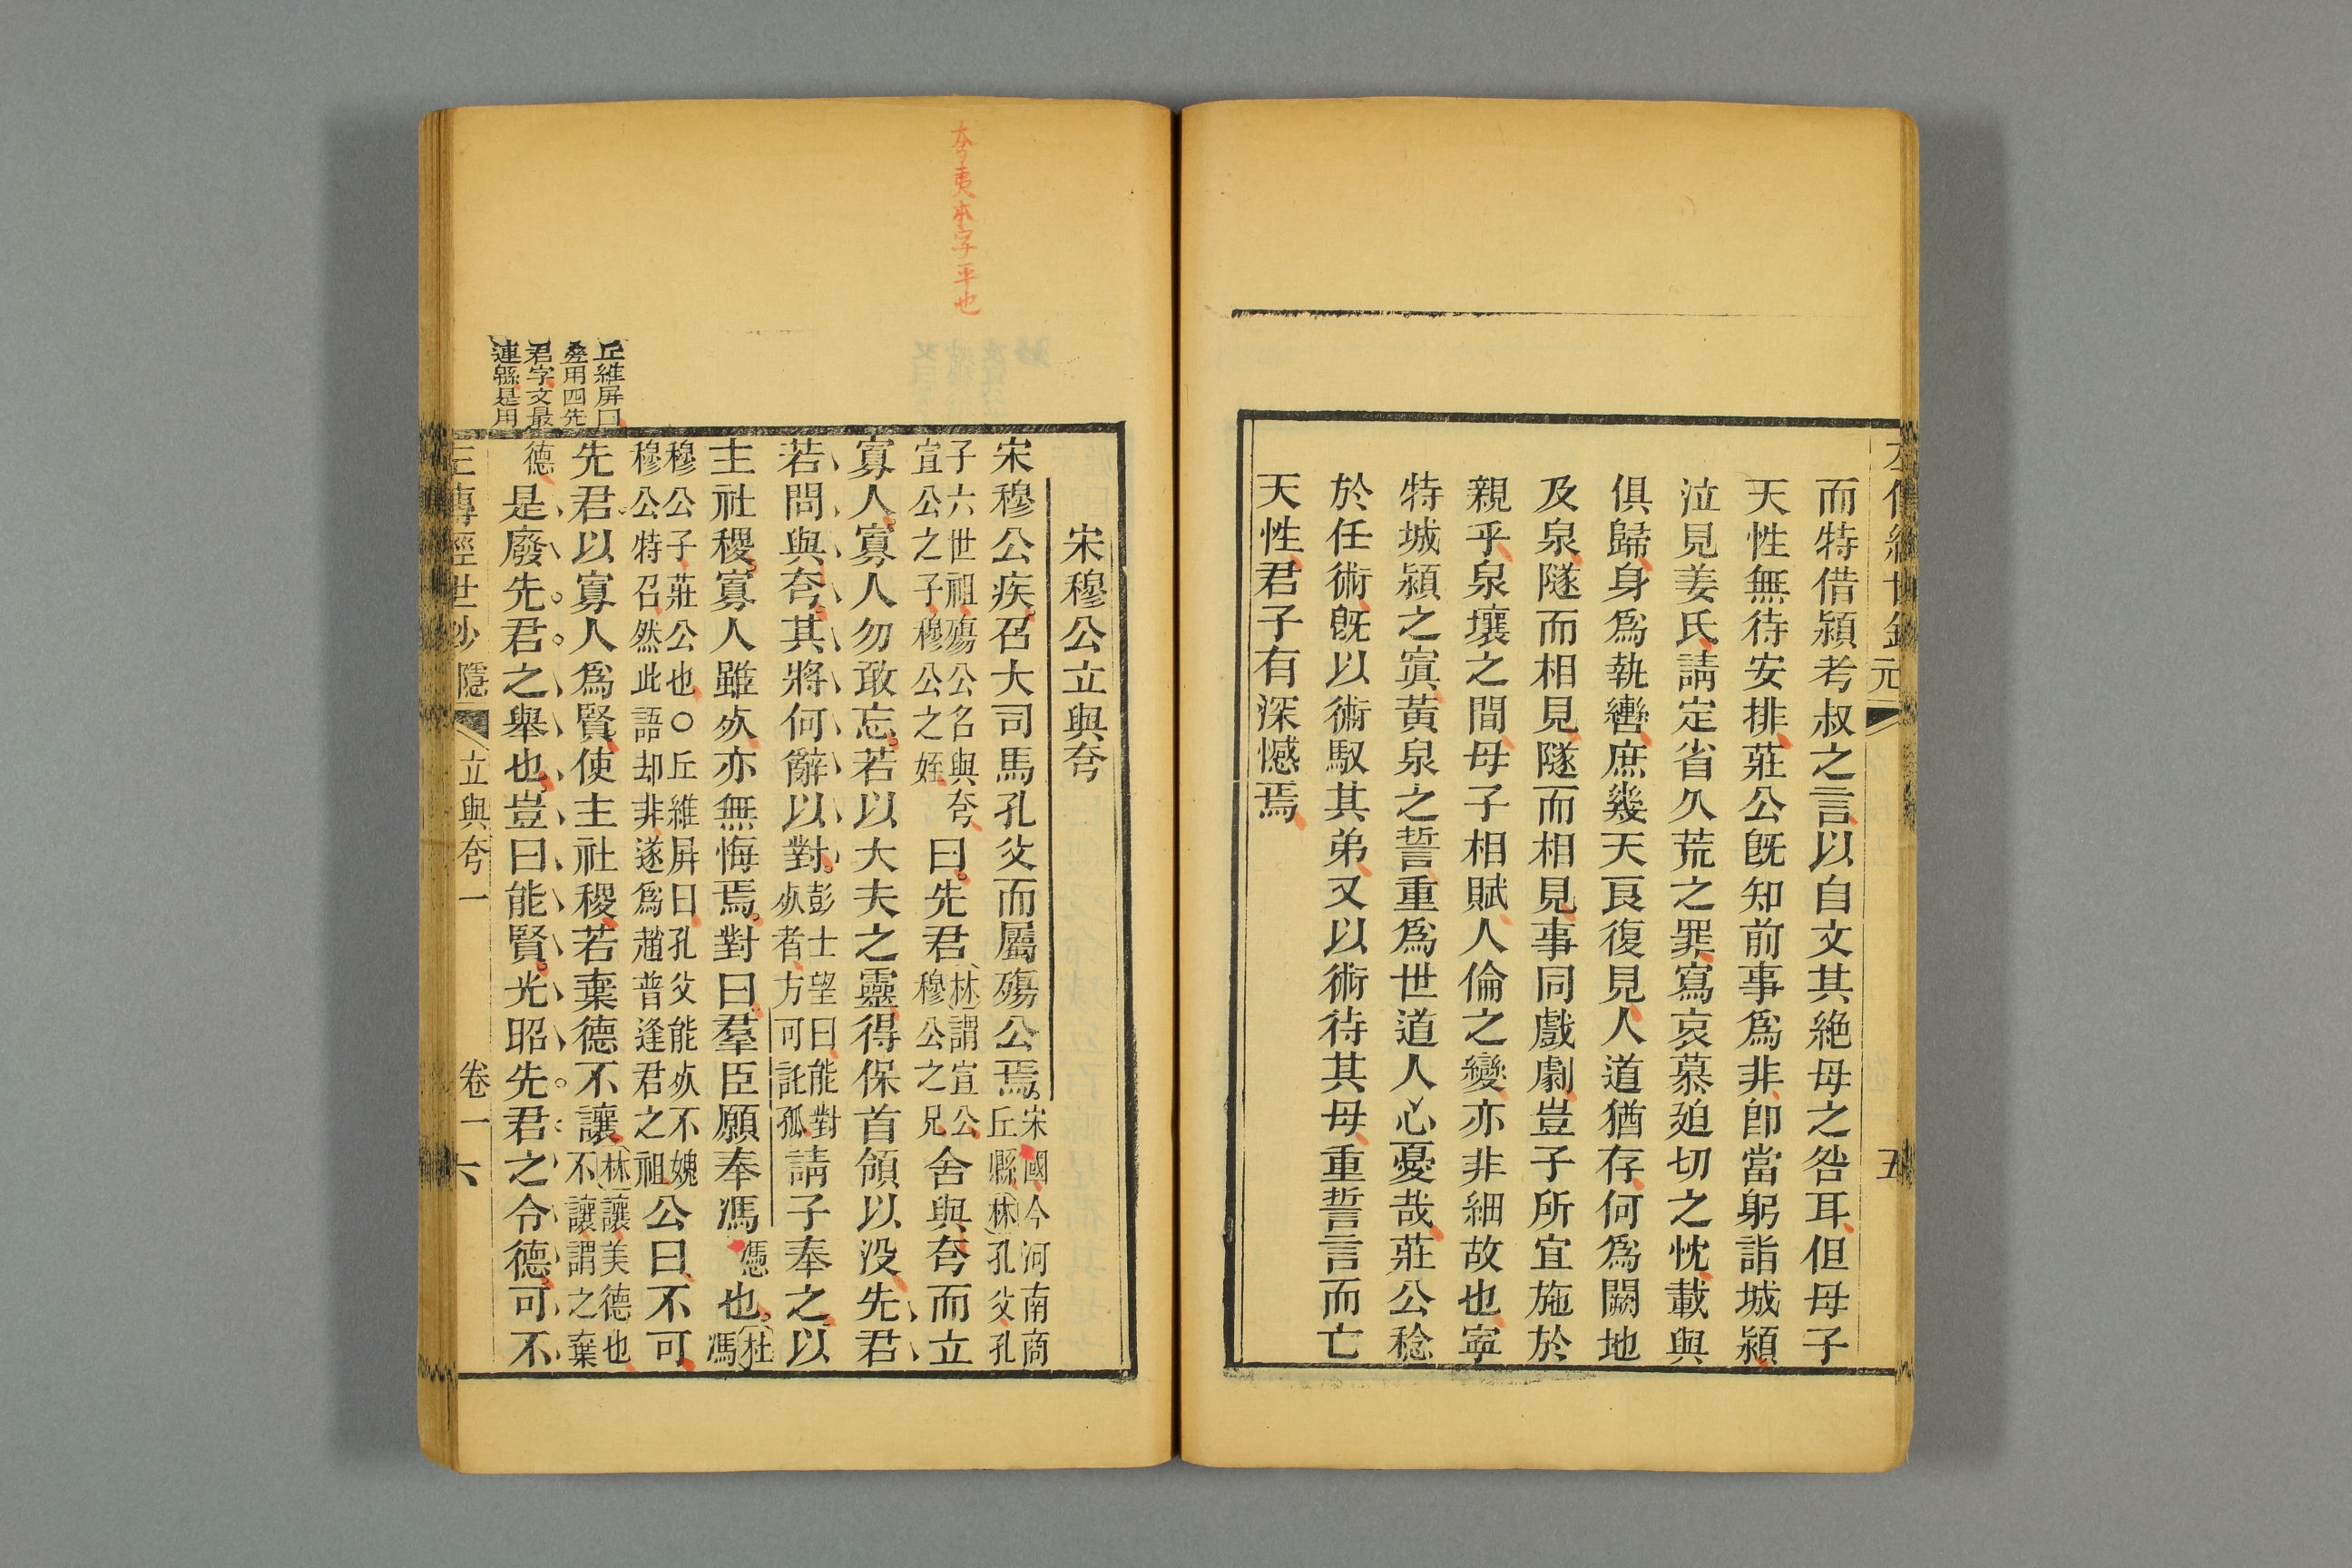 而特借潁考叔之言以自文其絶母之咎耳但母子
天性無待安排莊公旣知前事爲非卽當躬詣城潁
泣見姜氏請定省久荒之罪寫哀慕廹切之忱載與
俱歸身爲執轡庶幾天良復見人道猶存何爲闕地
及泉隧而相見隧而相見事同戲劇豈子所宜施於
親乎泉壤之間母子相賦人倫之變亦非細故也寧
特城潁之寘黃泉之誓重爲世道人心憂哉莊公稔
於任術旣以術馭其弟又以術待其母重誓言而亡
天性君子有深憾焉
五
夸夷本字平也
宋穆公立與夸
宋穆公疾召大司馬孔父而屬殤公焉宋國今河南商
丘縣林孔父孔
子六世祖殤公名與夸
宣公之子穆公之姪
曰先君林謂宣公
穆公之兄舍與夸而立
寡人寡人勿敢忘若以大夫之靈得保首領以没先君
若問與夸其將何辭以對彭士望曰能對
𣦸者方可託孤請子奉之以
主社稷寡人雖𣦸亦無悔焉對曰羣臣願奉馮憑也杜
馮
穆公子莊公也○丘維屏曰孔父能𣦸不媿
穆公特召然此語却非遂爲趙普逢君之祖公曰不可
先君以寡人爲賢使主社稷若棄德不讓林讓美德也
不讓謂之棄
德是廢先君之舉也豈曰能賢光昭先君之令德可不
丘維屏曰
叠用四先
君字文最
連緜是用
三傳經世鈔 隱 立與夸一 卷一 六